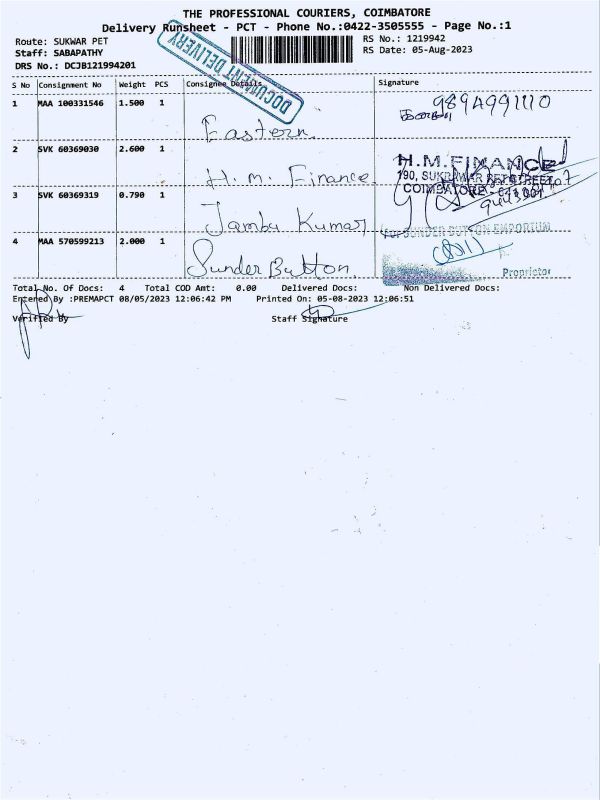 THE PROFESSIONAL COURIERS, COIMBATORE
Delivery Runsheet - PCT - Phone No.:0422-3505555 - Page No.:1
Route: SUKWAR PET
Staff: SABAPATHY
DRS No.: DCJB121994201
RS No.: 1219942
RS Date: 05-Aug-2023
DOCUMENT DELIVERY
S No Consignment No Weight PCS Consignee Details Signature
1 MAA 100331546 1.500 1 Eastern 9894991110
2 SVK 60369030 2.600 1 H.M. Finance
H.M.FINANCE
190, SUKRAWAR PET STREET
COIMBATORE - 641 001
3 SVK 60369319 0.790 1 Jambu Kumar
For SUNDER BUTTON EMPORIUM
4 MAA 570599213 2.000 1 Sunder Button
Proprietor
Total No. Of Docs: 4 Total COD Amt: 0.00 Delivered Docs: Non Delivered Docs:
Entered By :PREMAPCT 08/05/2023 12:06:42 PM Printed On: 05-08-2023 12:06:51
Verified By Staff Signature